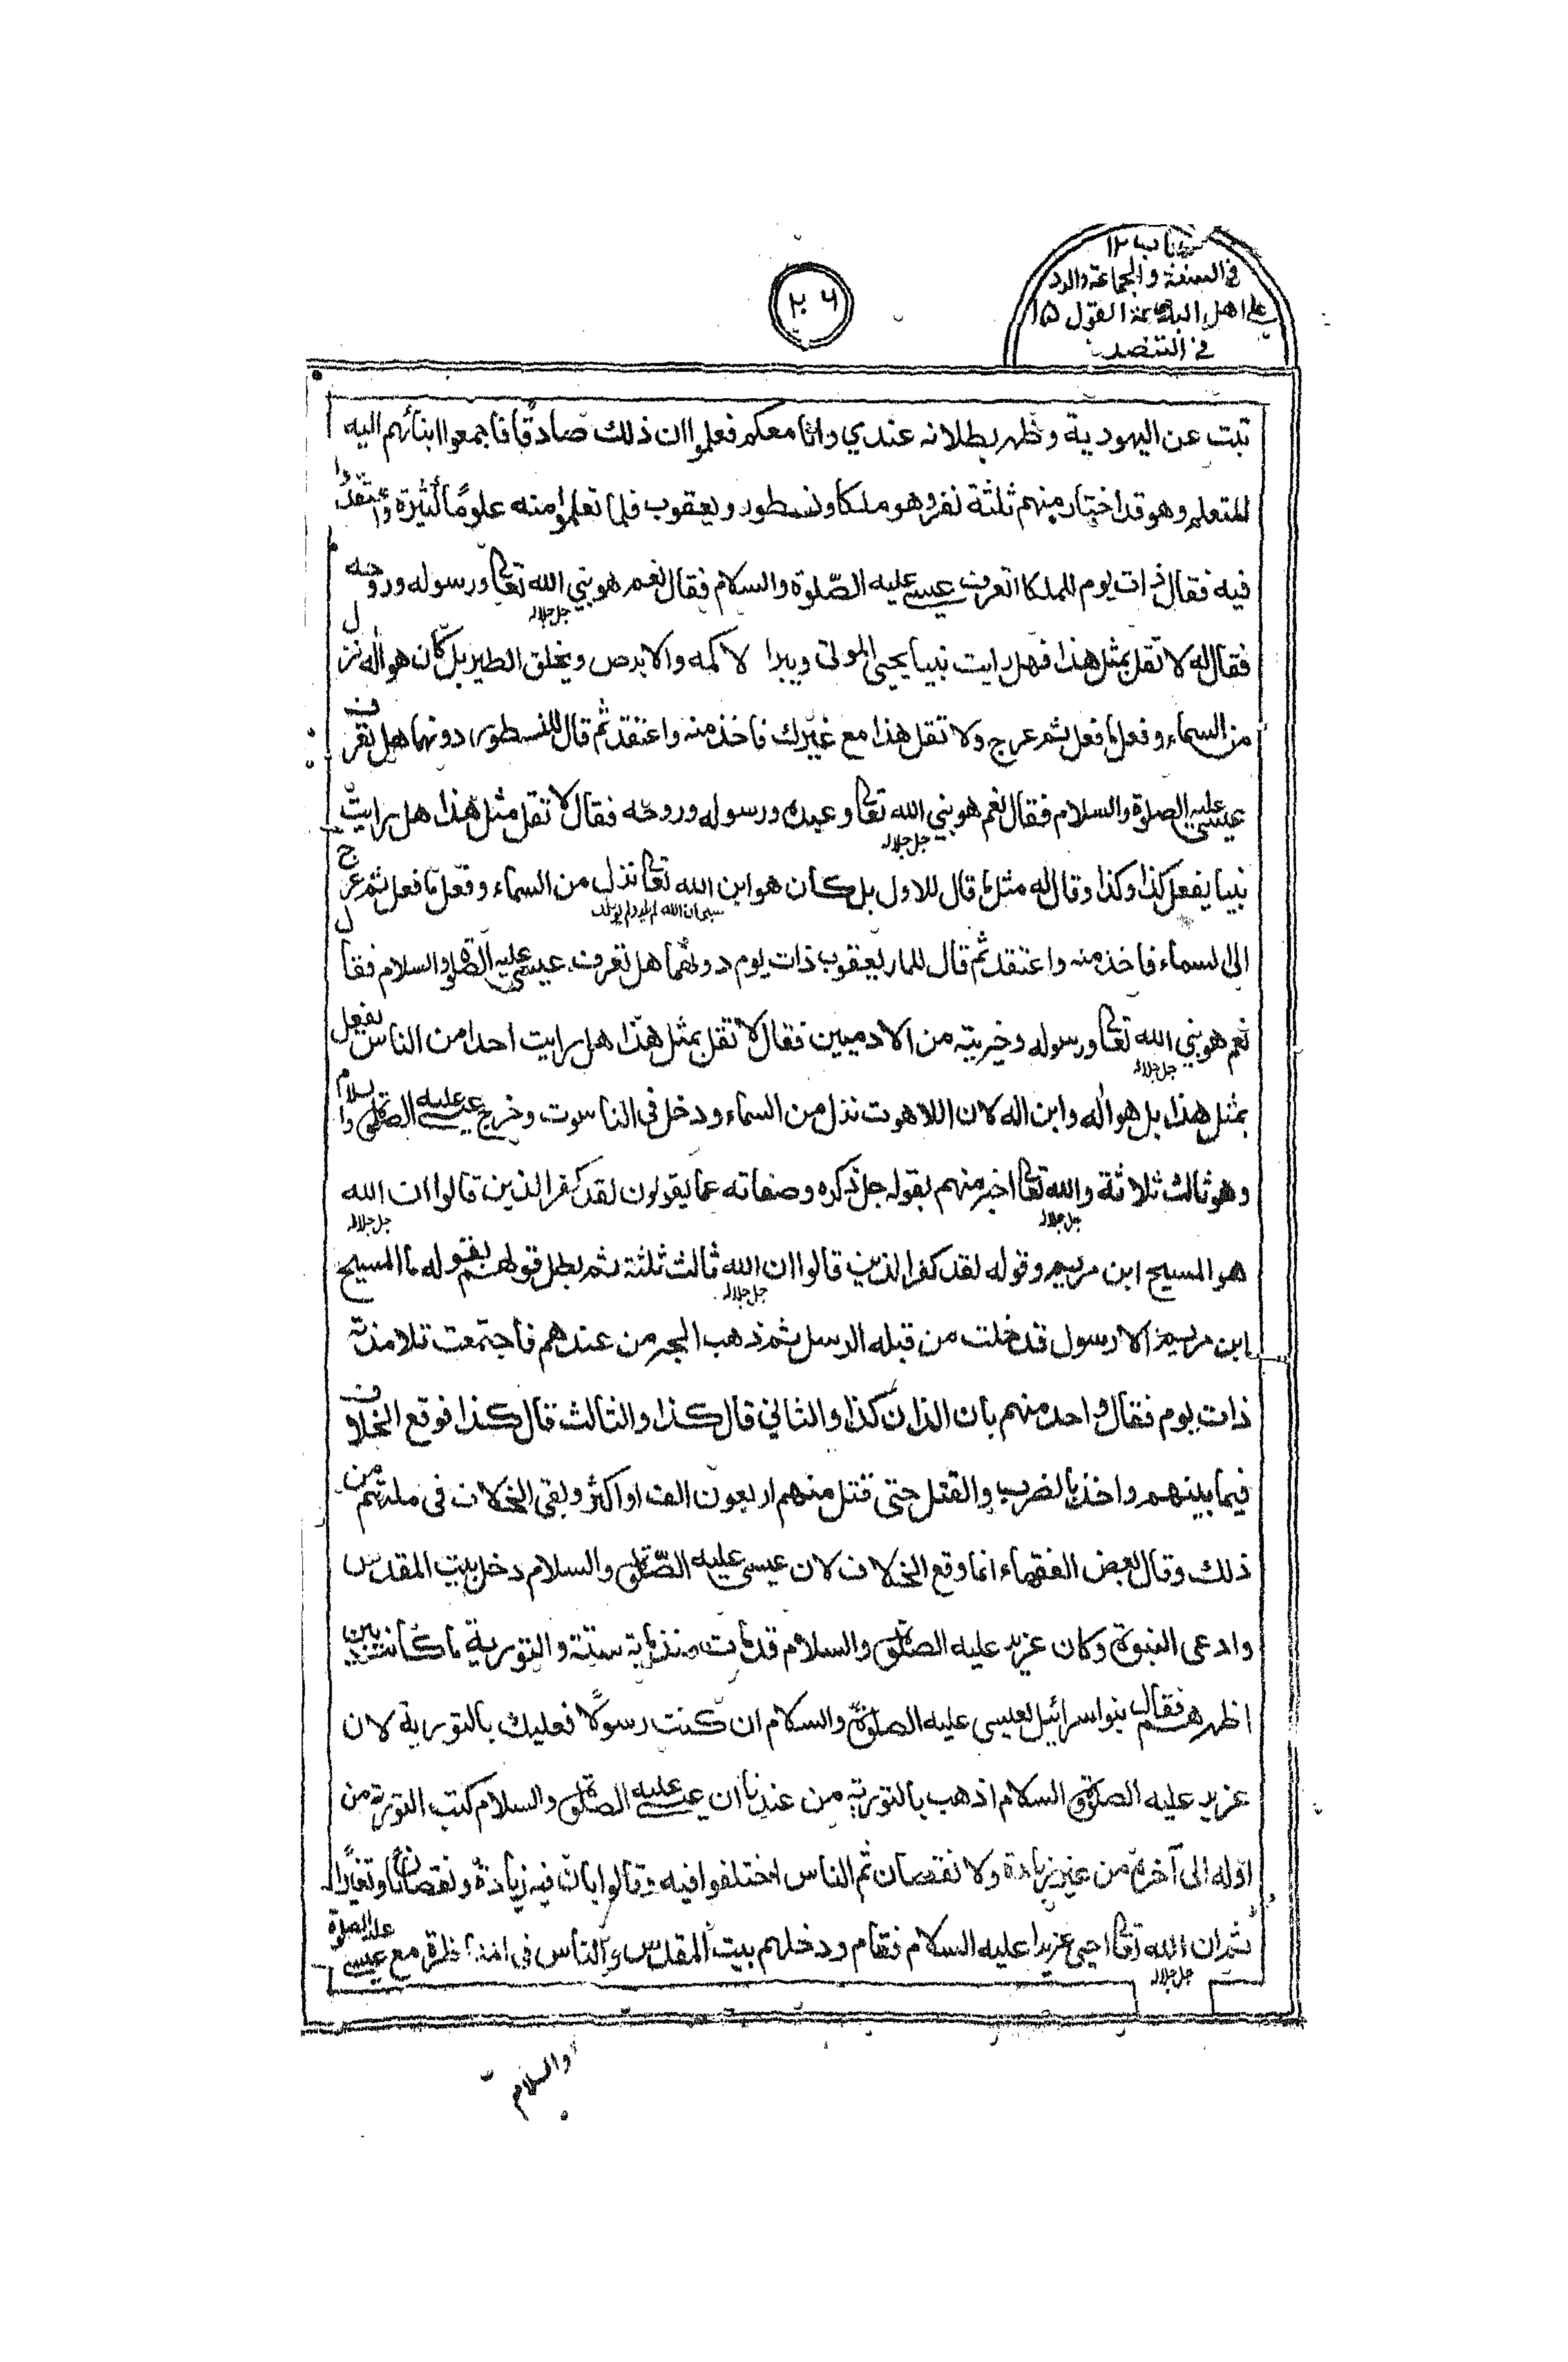 كتاب ١٢
في السنة والجماعة والرد
على اهل البدعة القول ١٥
في التنصر
٢٠٦
تبت عن اليهودية وظهر بطلانه عندي وانا معكم فعلموا ان ذلك صادقًا فاجمعوا ابنائهم اليه
للمتعلم وهو قد اختار منهم ثلثة نفر وهو ملكا ونسطور ويعقوب فلما تعلموا منه علومًا كثيرة واعتقدوا
فيه فقال ذات يوم للملكا اتعرف عيسى عليه الصّلوة والسلام فقال نعم هو نبي الله تعالى ورسوله وروحه
جل جلاله
فقال له لا تقل بمثل هذا فهل رايت نبيا يحيى الموتى ويبرا لاكمه والابرص ويخلق الطير بل كان هو اله نزل
من السماء وفعل ما فعل ثم عرج ولا تقل هذا مع غيرك فاخذ منه واعتقد ثم قال للنسطور دونهما هل تعرف
عيسى عليه الصلوة والسلام فقال نعم هو نبي الله تعالى وعبده ورسوله وروحه فقال لا تقل مثل هذا هل رايت
جل جلاله
نبيا يفعل كذا وكذا وقال له مثل ما قال للاول بل كان هو ابن الله تعالى نزل من السماء وفعل ما فعل ثم عرج
سبحان الله لم يلد ولم يولد
الى السماء فاخذ منه واعتقد ثم قال للمار يعقوب ذات يوم دونهما هل تعرف عيسى عليه الصلوة والسلام فقال
نعم هو نبي الله تعالى ورسوله وخيرته من الادميين فقال لا تقل بمثل هذا هل رايت احدا من الناس يفعل
جل جلاله
بمثل هذا بل هو اله وابن اله لان اللاهوت نزل من السماء ودخل في الناسوت وخرج عيسى عليه الصلوة والسلام
وهو ثالث ثلاثة والله تعالى اخبر منهم بقوله جل ذكره وصفاته عما يقولون لقد كفر الذين قالوا ان الله
جل جلاله جل جلاله
هو المسيح ابن مريم وقوله لقد كفر الذين قالوا ان الله ثالث ثلثة ثم بطل قولهم بقوله ما المسيح
جل جلاله
ابن مريم الا رسول قد خلت من قبله الرسل ثم ذهب البحر من عندهم فاجتمعت تلامذته
ذات يوم فقال واحد منهم بان الذان كذا والثاني قال كذا والثالث قال كذا فوقع الخلاف
فيما بينهم واخذ بالضرب والقتل حتى قتل منهم اربعون الف او اكثر وبقى الخلاف فى ملتهم من
ذلك وقال بعض الفقهاء انما وقع الخلاف لان عيسى عليه الصّلوة والسلام دخل بيت المقدس
وادعى النبوة وكان عزير عليه الصلوة والسلام قد مات منذ مائة سنة والتورية ما كانت بين
اظهرهم فقال بنو اسرائيل لعيسى عليه الصلوة والسلام ان كنت رسولًا فعليك بالتورية لان
عزير عليه الصلوة والسلام اذهب بالتورية من عندنا ان عيسى عليه الصلوة والسلام كتب التورية من
اوّله الى آخره من غير زيادة ولا نقصان ثم الناس اختلفوا فيه وقالوا بان فيه زيادة ونقصانًا وتغيرًا
ثم ان الله تعالى احيى عزيرا عليه السلام فقام ودخلهم بيت المقدس والناس في مع عيسى عليه الصلوة
جل جلاله
والسلام